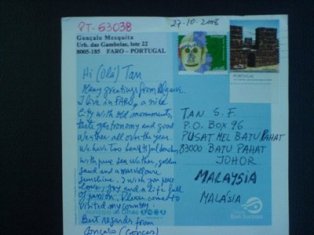 PT-53038
27-10-2008
Gonçalo Mesquita
Urb. das Gambelas, lote 22
8005-185 FARO - PORTUGAL
Hi (Olá) Tan
Many greetings from
I live in FARO, a nice
City with old monuments,
gastronomy and good
Weather all over the year.
We have too beautiful beaches
with pure sea water, golden
sand and a marvellous
sunshine. I wish for you
Love, joy and a life full
of passion. Please come to
visited my country.
Best regards from
Gonçalo
TAN S. F.
P.O. BOX 96
PUSAT MEL BATU PAHAT
83000 BATU PAHAT
JOHOR
MALAYSIA
MALÁSIA